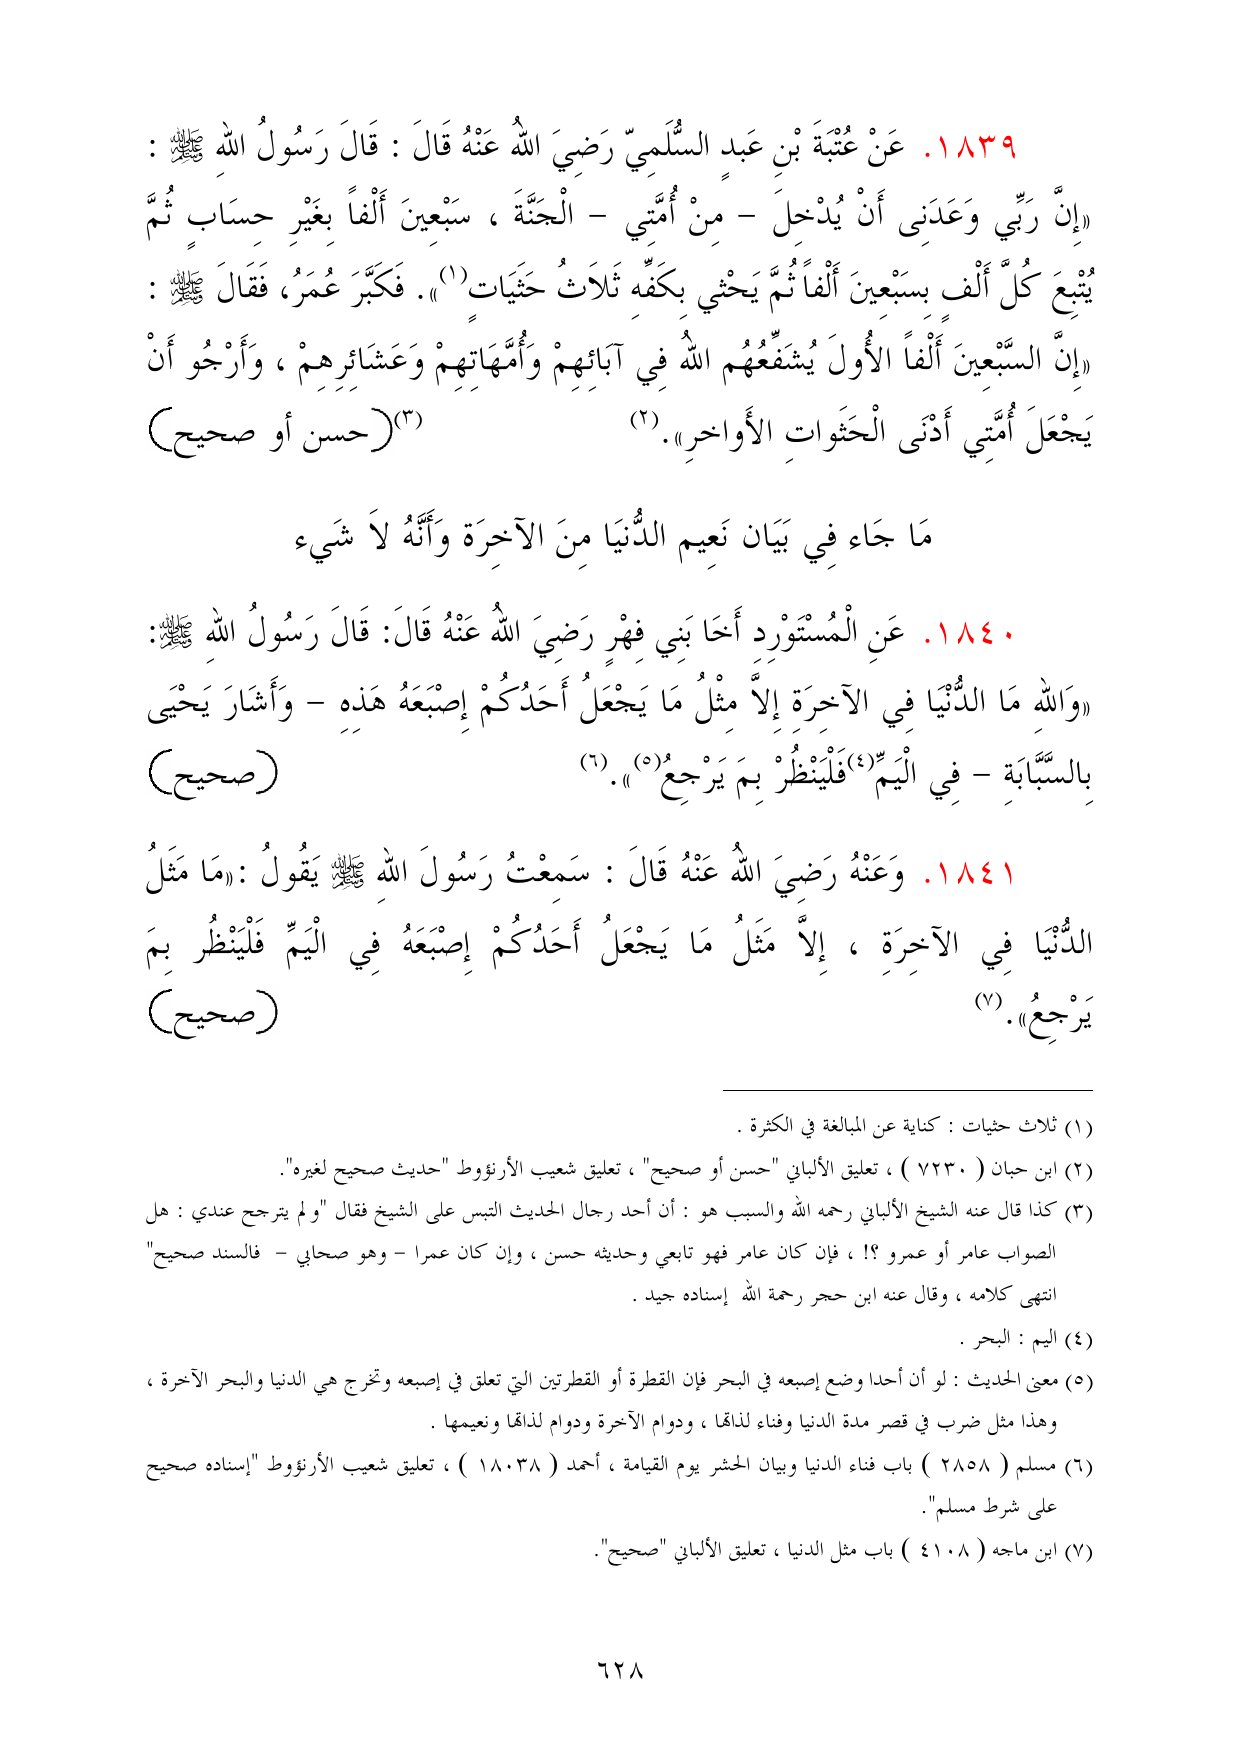 ١٨٣٩. عَنْ عُتْبَةَ بْنِ عَبدٍ السُّلَمِيّ رَضِيَ اللهُ عَنْهُ قَالَ : قَالَ رَسُولُ اللهِ ﷺ :
«إِنَّ رَبِّي وَعَدَنِى أَنْ يُدْخِلَ – مِنْ أُمَّتِي – الْجَنَّةَ ، سَبْعِينَ أَلْفاً بِغَيْرِ حِسَابٍ ثُمَّ
يُتْبِعَ كُلَّ أَلْفٍ بِسَبْعِينَ أَلْفاً ثُمَّ يَحْثِي بِكَفِّهِ ثَلاَثُ حَثَيَاتٍ(١)». فَكَبَّرَ عُمَرُ، فَقَالَ ﷺ :
«إِنَّ السَّبْعِينَ أَلْفاً الأُولَ يُشَفِّعُهُم اللهُ فِي آبَائِهِمْ وَأُمَّهَاتِهِمْ وَعَشَائِرِهِمْ ، وَأَرْجُو أَنْ
يَجْعَلَ أُمَّتِي أَدْنَى الْحَثَواتِ الأَواخرِ».(٢) (٣)(حسن أو صحيح)
مَا جَاء فِي بَيَان نَعِيم الدُّنيَا مِنَ الآخِرَة وَأَنَّهُ لاَ شَيء
١٨٤٠. عَنِ الْمُسْتَوْرِدِ أَخَا بَنِي فِهْرٍ رَضِيَ اللهُ عَنْهُ قَالَ: قَالَ رَسُولُ اللهِ ﷺ:
«وَاللهِ مَا الدُّنْيَا فِي الآخِرَةِ إِلاَّ مِثْلُ مَا يَجْعَلُ أَحَدُكُمْ إِصْبَعَهُ هَذِهِ – وَأَشَارَ يَحْيَى
بِالسَّبَّابَةِ – فِي الْيَمِّ(٤)فَلْيَنْظُرْ بِمَ يَرْجِعُ(٥)».(٦) (صحيح)
١٨٤١. وَعَنْهُ رَضِيَ اللهُ عَنْهُ قَالَ : سَمِعْتُ رَسُولَ اللهِ ﷺ يَقُولُ :«مَا مَثَلُ
الدُّنْيَا فِي الآخِرَةِ ، إِلاَّ مَثَلُ مَا يَجْعَلُ أَحَدُكُمْ إِصْبَعَهُ فِي الْيَمِّ فَلْيَنْظُر بِمَ
يَرْجِعُ».(٧) (صحيح)
(١) ثلاث حثيات : كناية عن المبالغة في الكثرة .
(٢) ابن حبان ( ٧٢٣٠ ) ، تعليق الألباني "حسن أو صحيح" ، تعليق شعيب الأرنؤوط "حديث صحيح لغيره".
(٣) كذا قال عنه الشيخ الألباني رحمه الله والسبب هو : أن أحد رجال الحديث التبس على الشيخ فقال "ولم يترجح عندي : هل
الصواب عامر أو عمرو ؟! ، فإن كان عامر فهو تابعي وحديثه حسن ، وإن كان عمرا – وهو صحابي – فالسند صحيح"
انتهى كلامه ، وقال عنه ابن حجر رحمة الله إسناده جيد .
(٤) اليم : البحر .
(٥) معنى الحديث : لو أن أحدا وضع إصبعه في البحر فإن القطرة أو القطرتين التي تعلق في إصبعه وتخرج هي الدنيا والبحر الآخرة ،
وهذا مثل ضرب في قصر مدة الدنيا وفناء لذاتها ، ودوام الآخرة ودوام لذاتها ونعيمها .
(٦) مسلم ( ٢٨٥٨ ) باب فناء الدنيا وبيان الحشر يوم القيامة ، أحمد ( ١٨٠٣٨ ) ، تعليق شعيب الأرنؤوط "إسناده صحيح
على شرط مسلم".
(٧) ابن ماجه ( ٤١٠٨ ) باب مثل الدنيا ، تعليق الألباني "صحيح".
٦٢٨